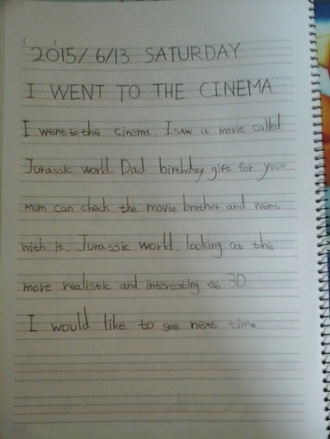 2015/ 6/13 SATURDAY
I WENT TO THE CINEMA.
I went to the cinema. I saw a movie called
Jurassic world. Dad birthday gift for your
mum can check the movie brother and
with it. Jurassic world, looking at the
more realistic and interesting 3D
I would like to see next time.